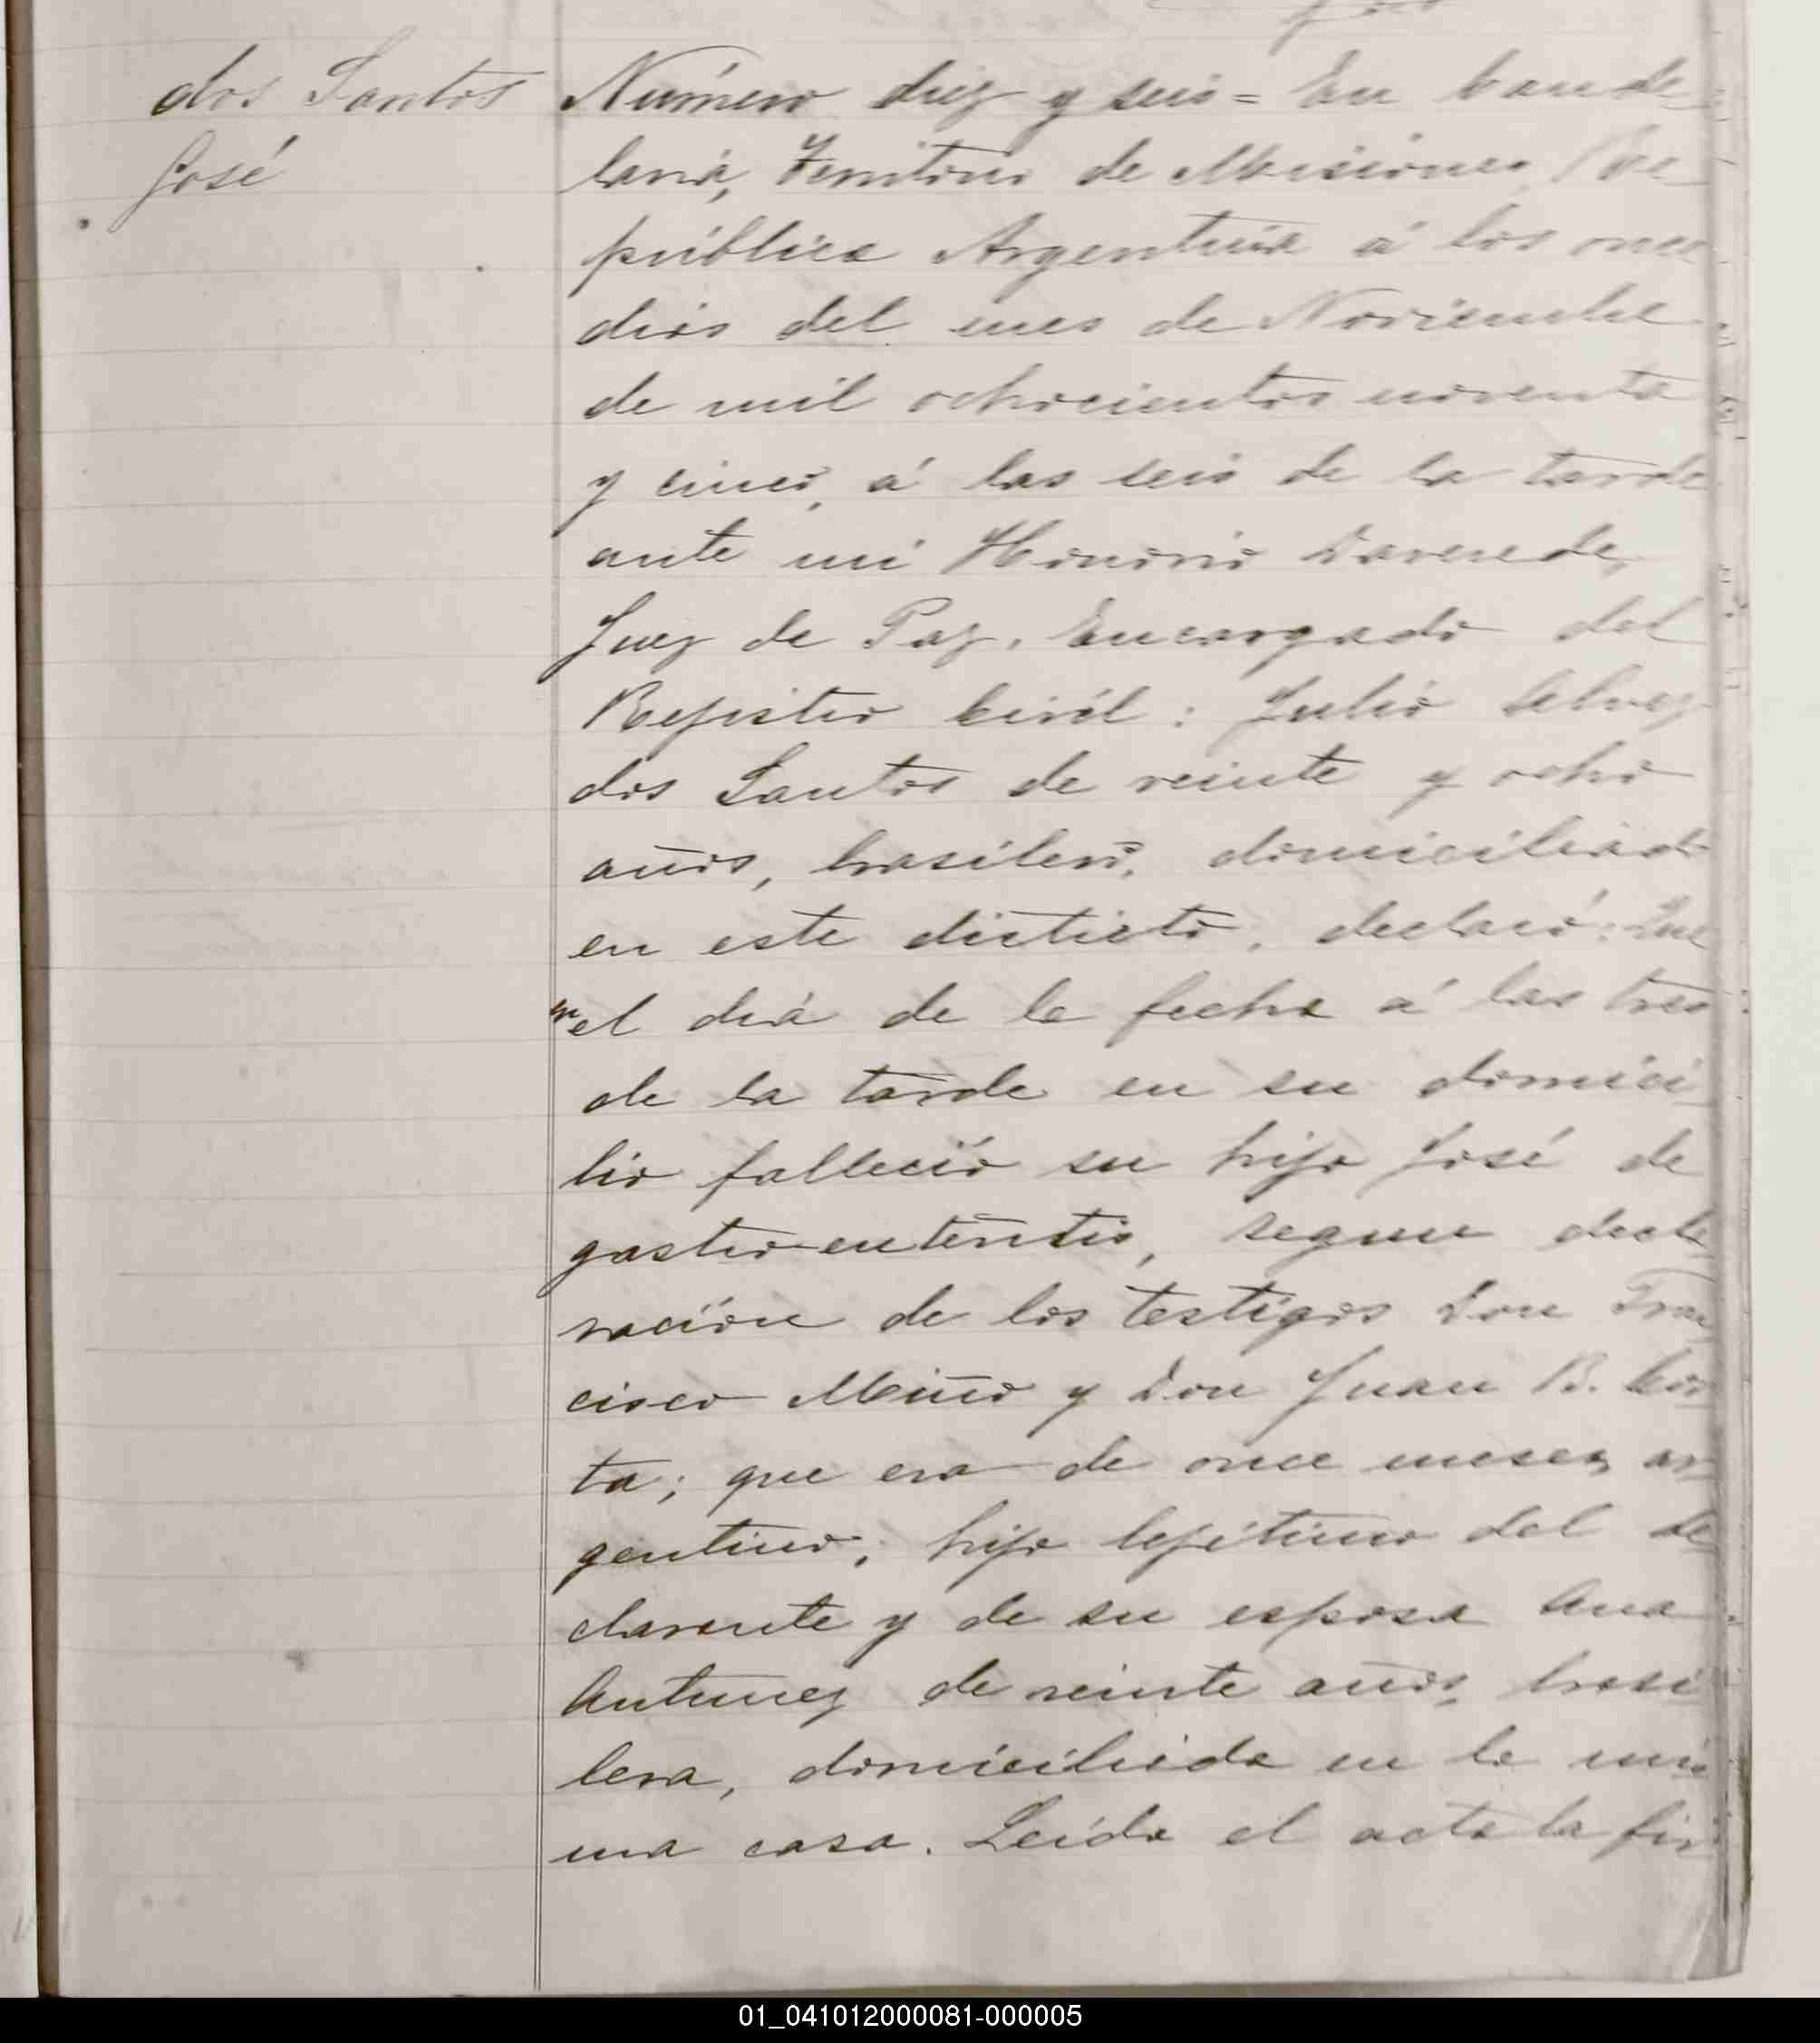 dos Santos
José
Número diez y seis = En Cande-
laria, Territorio de Misiones, Re-
pública Argentina á los once
dias del mes de Noviembre
de mil ochocientos noventa
y cinco, á las seis de la tarde
ante mi Honorio
Juez de Paz, Encargado del
Rejistro Civíl: Julio Alvez
dos Santos de veinte y ocho
años, brasilero, domiciliado
en este distrito, declaró: Que
en el dia de la fecha á las tres
de la tarde en su domici-
lio falleció su hijo José de
gastro-enteritis, segun decla
racion de los testigos Don Fran
cisco Miño y Don Juan B.
ta; que era de once meses, ar-
gentino; hijo lejítimo del de-
clarante y de su esposa Ana
Antunez de veinte años, brasi
lera, domiciliada en la mis
ma casa. Leida el acta la fir
01_041012000081-000005